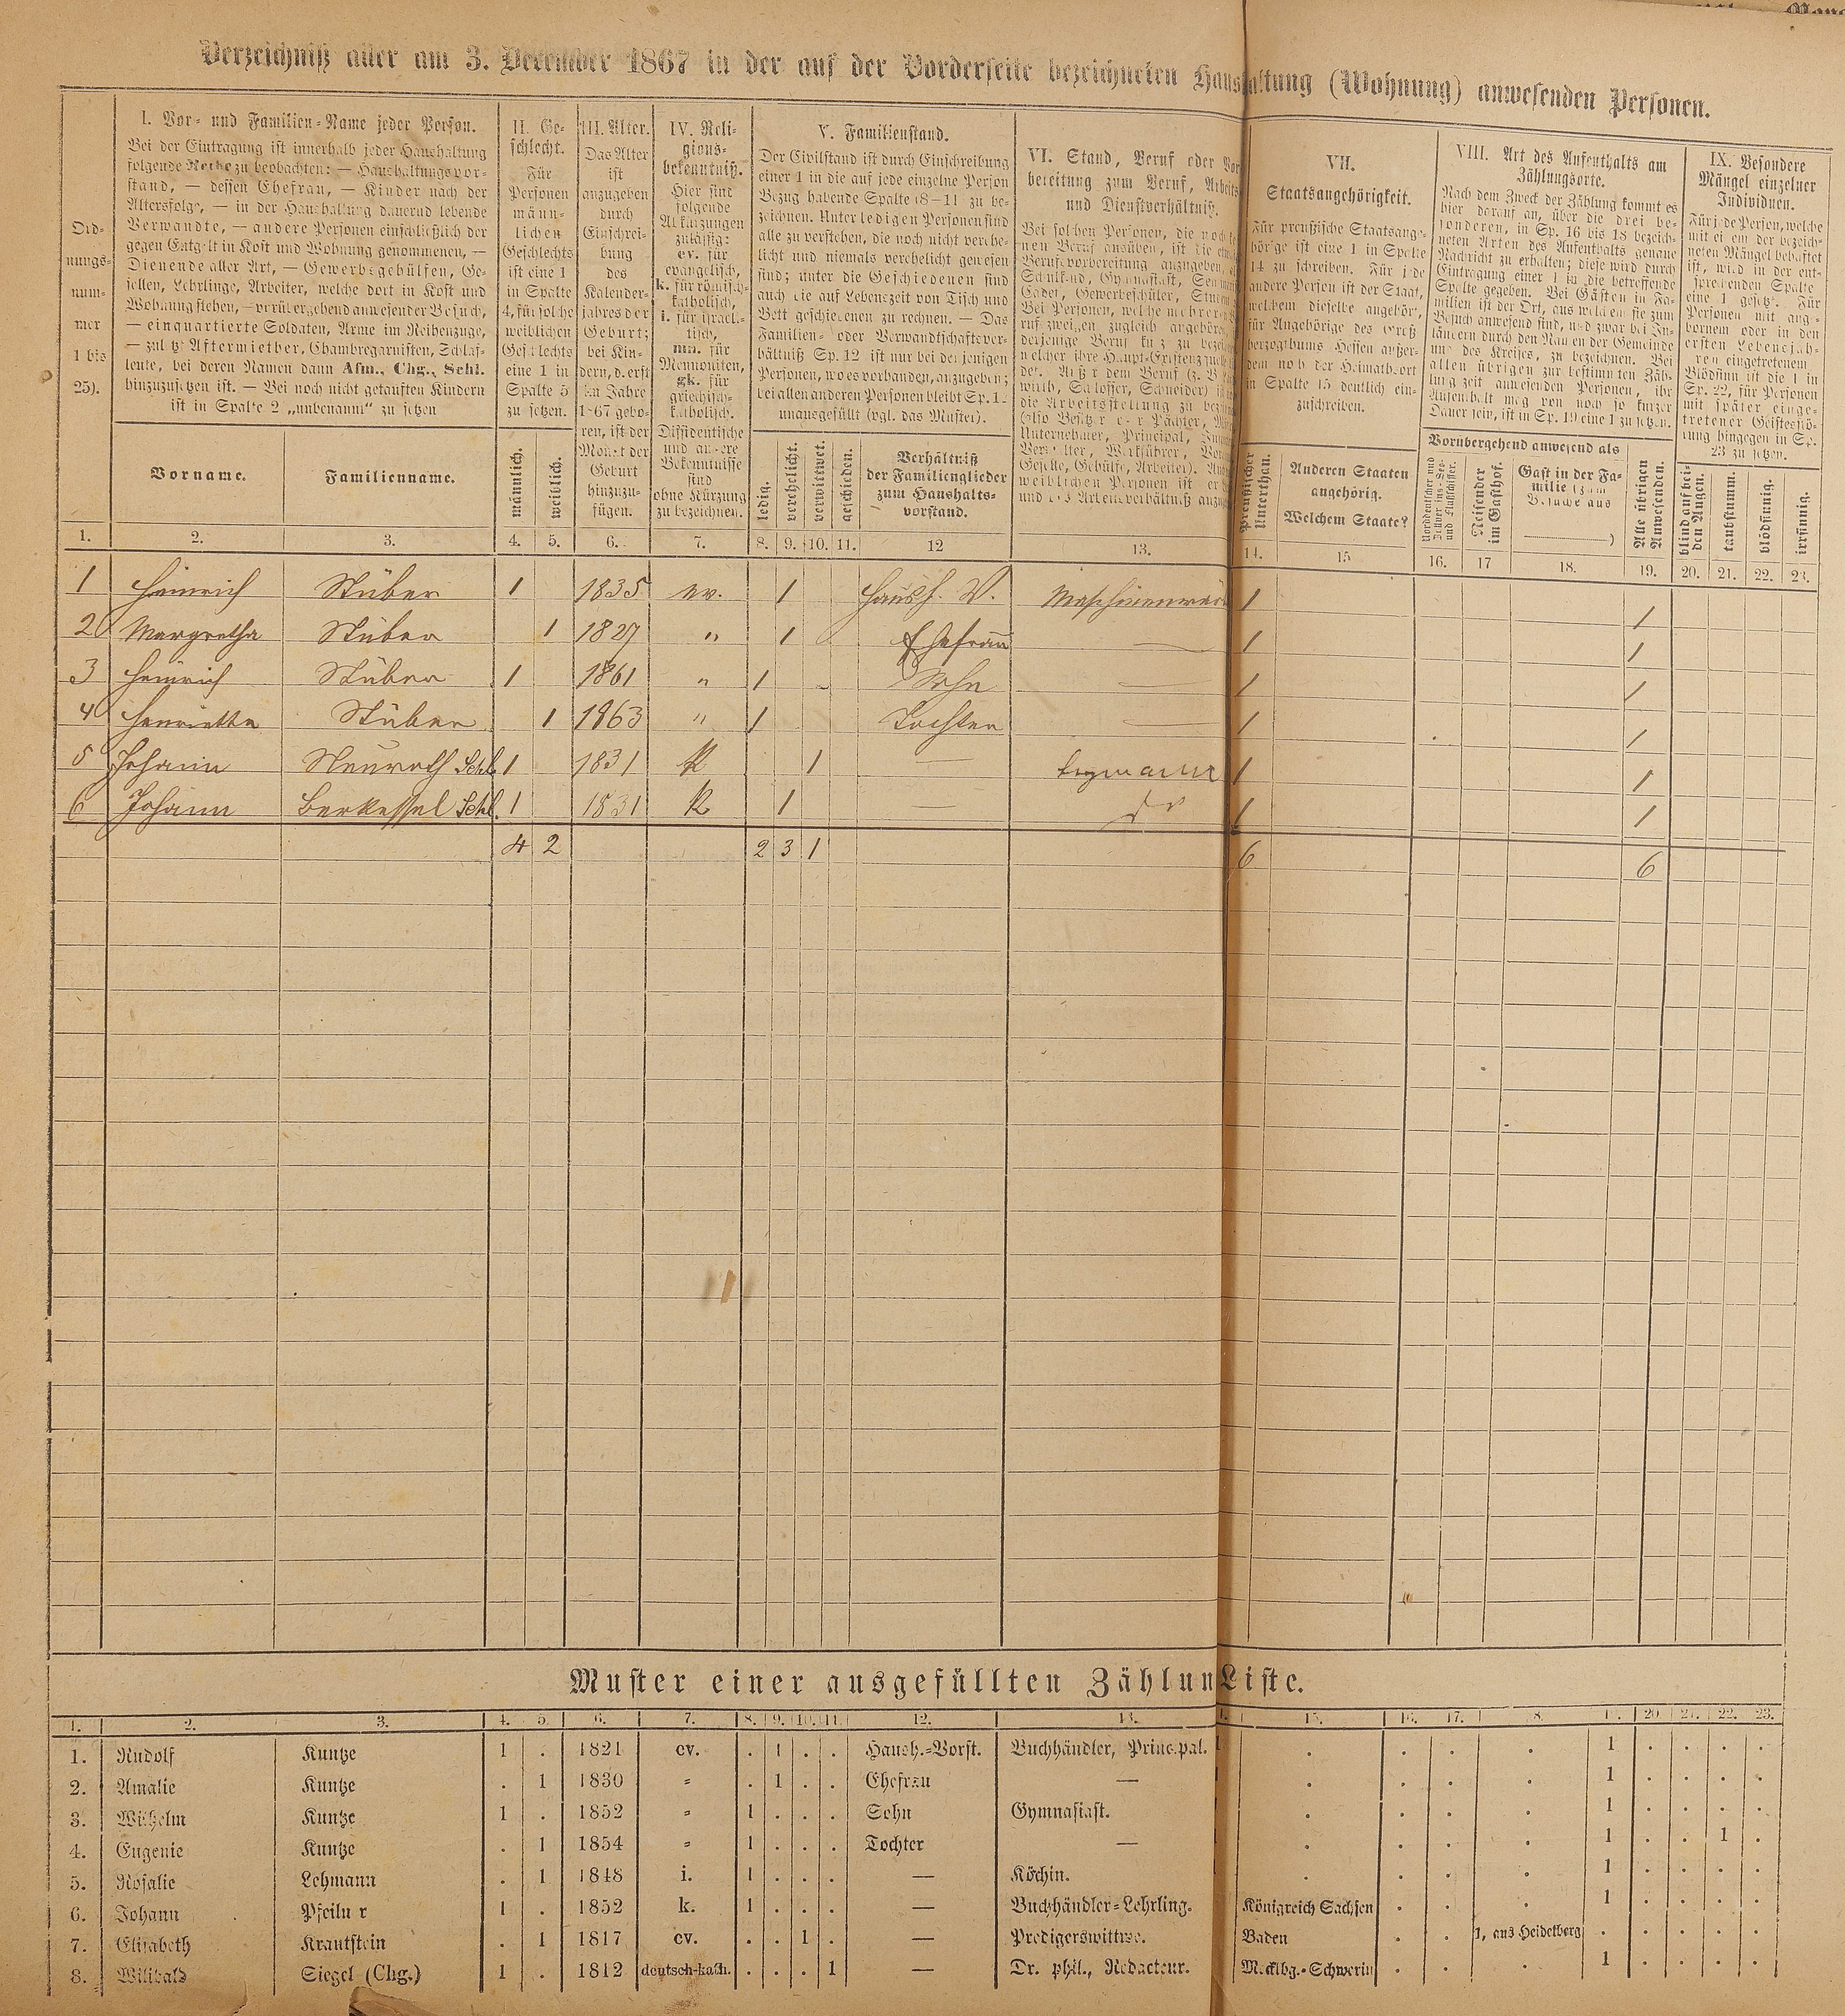 Verzeichniß aller am 3. December 1867 in der auf der Vorderseite bezeichneten Haushaltung (Wohnung) anwesenden Personen.
Ord-
nungs-
num-
mer
1 bis
25).
I. Vor- und Familien-Name jeder Person.
Bei der Eintragung ist innerhalb jeder Haushaltung
folgende Reihe zu beobachten: — Haushaltungsvor-
stand, — dessen Ehefrau, — Kinder nach der
Altersfolge, — in der Haushaltung dauernd lebende
Verwandte, — andere Personen einschließlich der
gegen Entgelt in Kost und Wohnung genommenen, —
Dienende aller Art, — Gewerbsgehülfen, Ge-
sellen, Lehrlinge, Arbeiter, welche dort in Kost und
Wohnung stehen, — vorübergehend anwesender Besuch,
— einquartierte Soldaten, Arme im Reihenzuge,
— zuletzt Aftermiether, Chambregarnisten, Schlaf-
leute, bei deren Namen dann Afm., Chg., Schl.
hinzuzusetzen ist. — Bei noch nicht getauften Kindern
ist in Spalte 2 „unbenannt“ zu setzen
Vorname.
Familienname.
II. Ge-
schlecht.
Für
Personen
männ-
lichen
Geschlechts
ist eine 1
in Spalte
4, für solche
weiblichen
Geschlechts
eine 1 in
Spalte 5
zu setzen.
männlich.
weiblich.
III. Alter.
Das Alter
ist
anzugeben
durch
Einschrei-
bung
des
Kalender-
jahres der
Geburt;
bei Kin-
dern, d. erst
im Jahre
1867 gebo-
ren, ist der
Monat der
Geburt
hinzuzu-
fügen.
IV. Reli-
gions-
bekenntniß.
Hier sind
folgende
Abkürzungen
zulässig:
ev. für
evangelisch,
k. für römisch-
katholisch,
i. für israeli-
tisch,
mn. für
Mennoniten,
gk. für
griechisch-
katholisch.
Dissidentische
und andere
Bekenntnisse
sind
ohne Kürzung
zu bezeichnen.
V. Familienstand.
Der Civilstand ist durch Einschreibung
einer 1 in die auf jede einzelne Person
Bezug habende Spalte (8—11) zu be-
zeichnen. Unter ledigen Personen sind
alle zu verstehen, die noch nicht verehe-
licht und niemals verehelicht gewesen
sind; unter die Geschiedenen sind
auch die auf Lebenszeit von Tisch und
Bett geschiedenen zu rechnen. — Das
Familien- oder Verwandtschaftsver-
hältniß Sp. 12 ist nur bei denjenigen
Personen, wo es vorhanden, anzugeben;
bei allen anderen Personen bleibt Sp. 12
unausgefüllt (vgl. das Muster).
ledig.
verehelicht.
verwittwet.
geschieden.
Verhältniß
der Familienglieder
zum Haushalts-
vorstand.
VI. Stand, Beruf oder Vor
bereitung zum Beruf, Arbeits
und Dienstverhältniß.
VII.
Staatsangehörigkeit.
Für preußische Staatsange-
hörige ist eine 1 in Spalte
14 zu schreiben. Für jede
andere Person ist der Staat,
welchem dieselbe angehört,
für Angehörige des Groß-
herzogthums Hessen außer-
dem noch der Heimathsort
in Spalte 15 deutlich ein-
zuschreiben.
Preußischer
Unterthan.
Anderen Staaten
angehörig.
Welchem Staate?
VIII. Art des Aufenthalts am
Zählungsorte.
Nach dem Zweck der Zählung kommt es
hier darauf an, über die drei be-
sonderen, in Sp. 16 bis 18 bezeich-
neten Arten des Aufenthalts genaue
Nachricht zu erhalten; diese wird durch
Eintragung einer 1 in die betreffende
Spalte gegeben. Bei Gästen in Fa-
milien ist der Ort, aus welchem sie zum
Besuch anwesend sind, und zwar bei In-
ländern durch den Namen der Gemeinde
und des Kreises, zu bezeichnen. Bei
allen übrigen zur bestimmten Zäh-
lungszeit anwesenden Personen, ihr
Aufenthalt mag von noch so kurzer
Dauer sein, ist in Sp. 19 eine 1 zu setzen.
Vorübergehend anwesend als
Reisender
im Gasthof.
Gast in der Fa-
milie (zum
Besuche aus
)
Alle übrigen
Anwesenden.
IX. Besondere
Mängel einzelner
Individuen.
Für jede Person, welche
mit einem der bezeich-
neten Mängel behaftet
ist, wird in der ent-
sprechenden Spalte
eine 1 gesetzt. Für
Personen mit ange-
bornem oder in den
ersten Lebensjah-
ren eingetretenem
Blödsinn ist die 1 in
Sp. 22, für Personen
mit später einge-
tretener Geistesstö-
rung hingegen in Sp.
23 zu setzen.
blind auf bei-
den Augen.
taubstumm.
blödsinnig.
irrsinnig.
1. 2. 3. 4. 5. 6. 7. 8. 9. 10. 11. 12 13. 14. 15 16. 17 18. 19. 20. 21. 22. 23.
1 Heinrich Stüber 1 1835 ev. 1 Haush. V. Maschienenwär 1 1
2 Margretha Stüber 1 1827 " 1 Ehefrau — 1 1
3 Heinrich Stüber 1 1861 " 1 Sohn — 1 1
4 Henriette Stüber 1 1863 " 1 Tochter — 1 1
5 Johann Neuroth Schl. 1 1831 K 1 — bergmann 1 1
6 Johann Berkessel Schl. 1 1831 K 1 — do 1 1
4 2 2 3 1 6 6
Muster einer ausgefüllten Zählun Liste.
1. 2. 3. 4. 5. 6. 7. 8. 9. 10. 11. 12. 13. 15. 16. 17. 18. 19. 20. 21. 22. 23.
1. Rudolf Kuntze 1 . 1821 ev. . 1 . . Haush.-Vorst. Buchhändler, Principal. . . . . 1 . . . .
2. Amalie Kuntze . 1 1830 = . 1 . . Ehefrau — . . . . 1 . . . .
3. Wilhelm Kuntze 1 . 1852 = 1 . . . Sohn Gymnasiast. . . . . 1 . . . .
4. Eugenie Kuntze . 1 1854 = 1 . . . Tochter — . . . . 1 . . 1 .
5. Rosalie Lehmann . 1 1848 i. 1 . . . — Köchin. . . . . 1 . . . .
6. Johann Pfeilner 1 . 1852 k. 1 . . . — Buchhändler-Lehrling. Königreich Sachsen . . . 1 . . . .
7. Elisabeth Krautstein . 1 1817 ev. . . 1 . — Predigerswittwe. Baden . . 1, aus Heidelberg . . . . .
8. Wilibald Siegel (Chg.) 1 . 1812 deutsch-kath. . . . 1 — Dr. phil., Redacteur. Mecklbg.-Schwerin . . . 1 . . . .